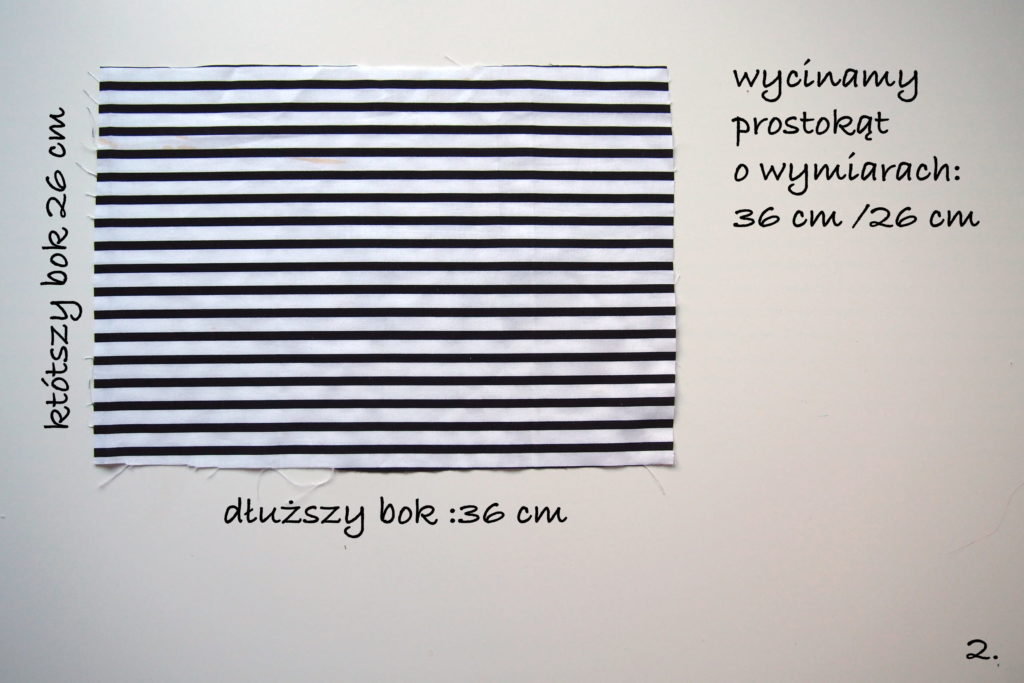 wycinamy
prostokąt
o wymiarach:
36 cm /26 cm
któtszy bok 26 cm
dłuższy bok :36 cm
2.